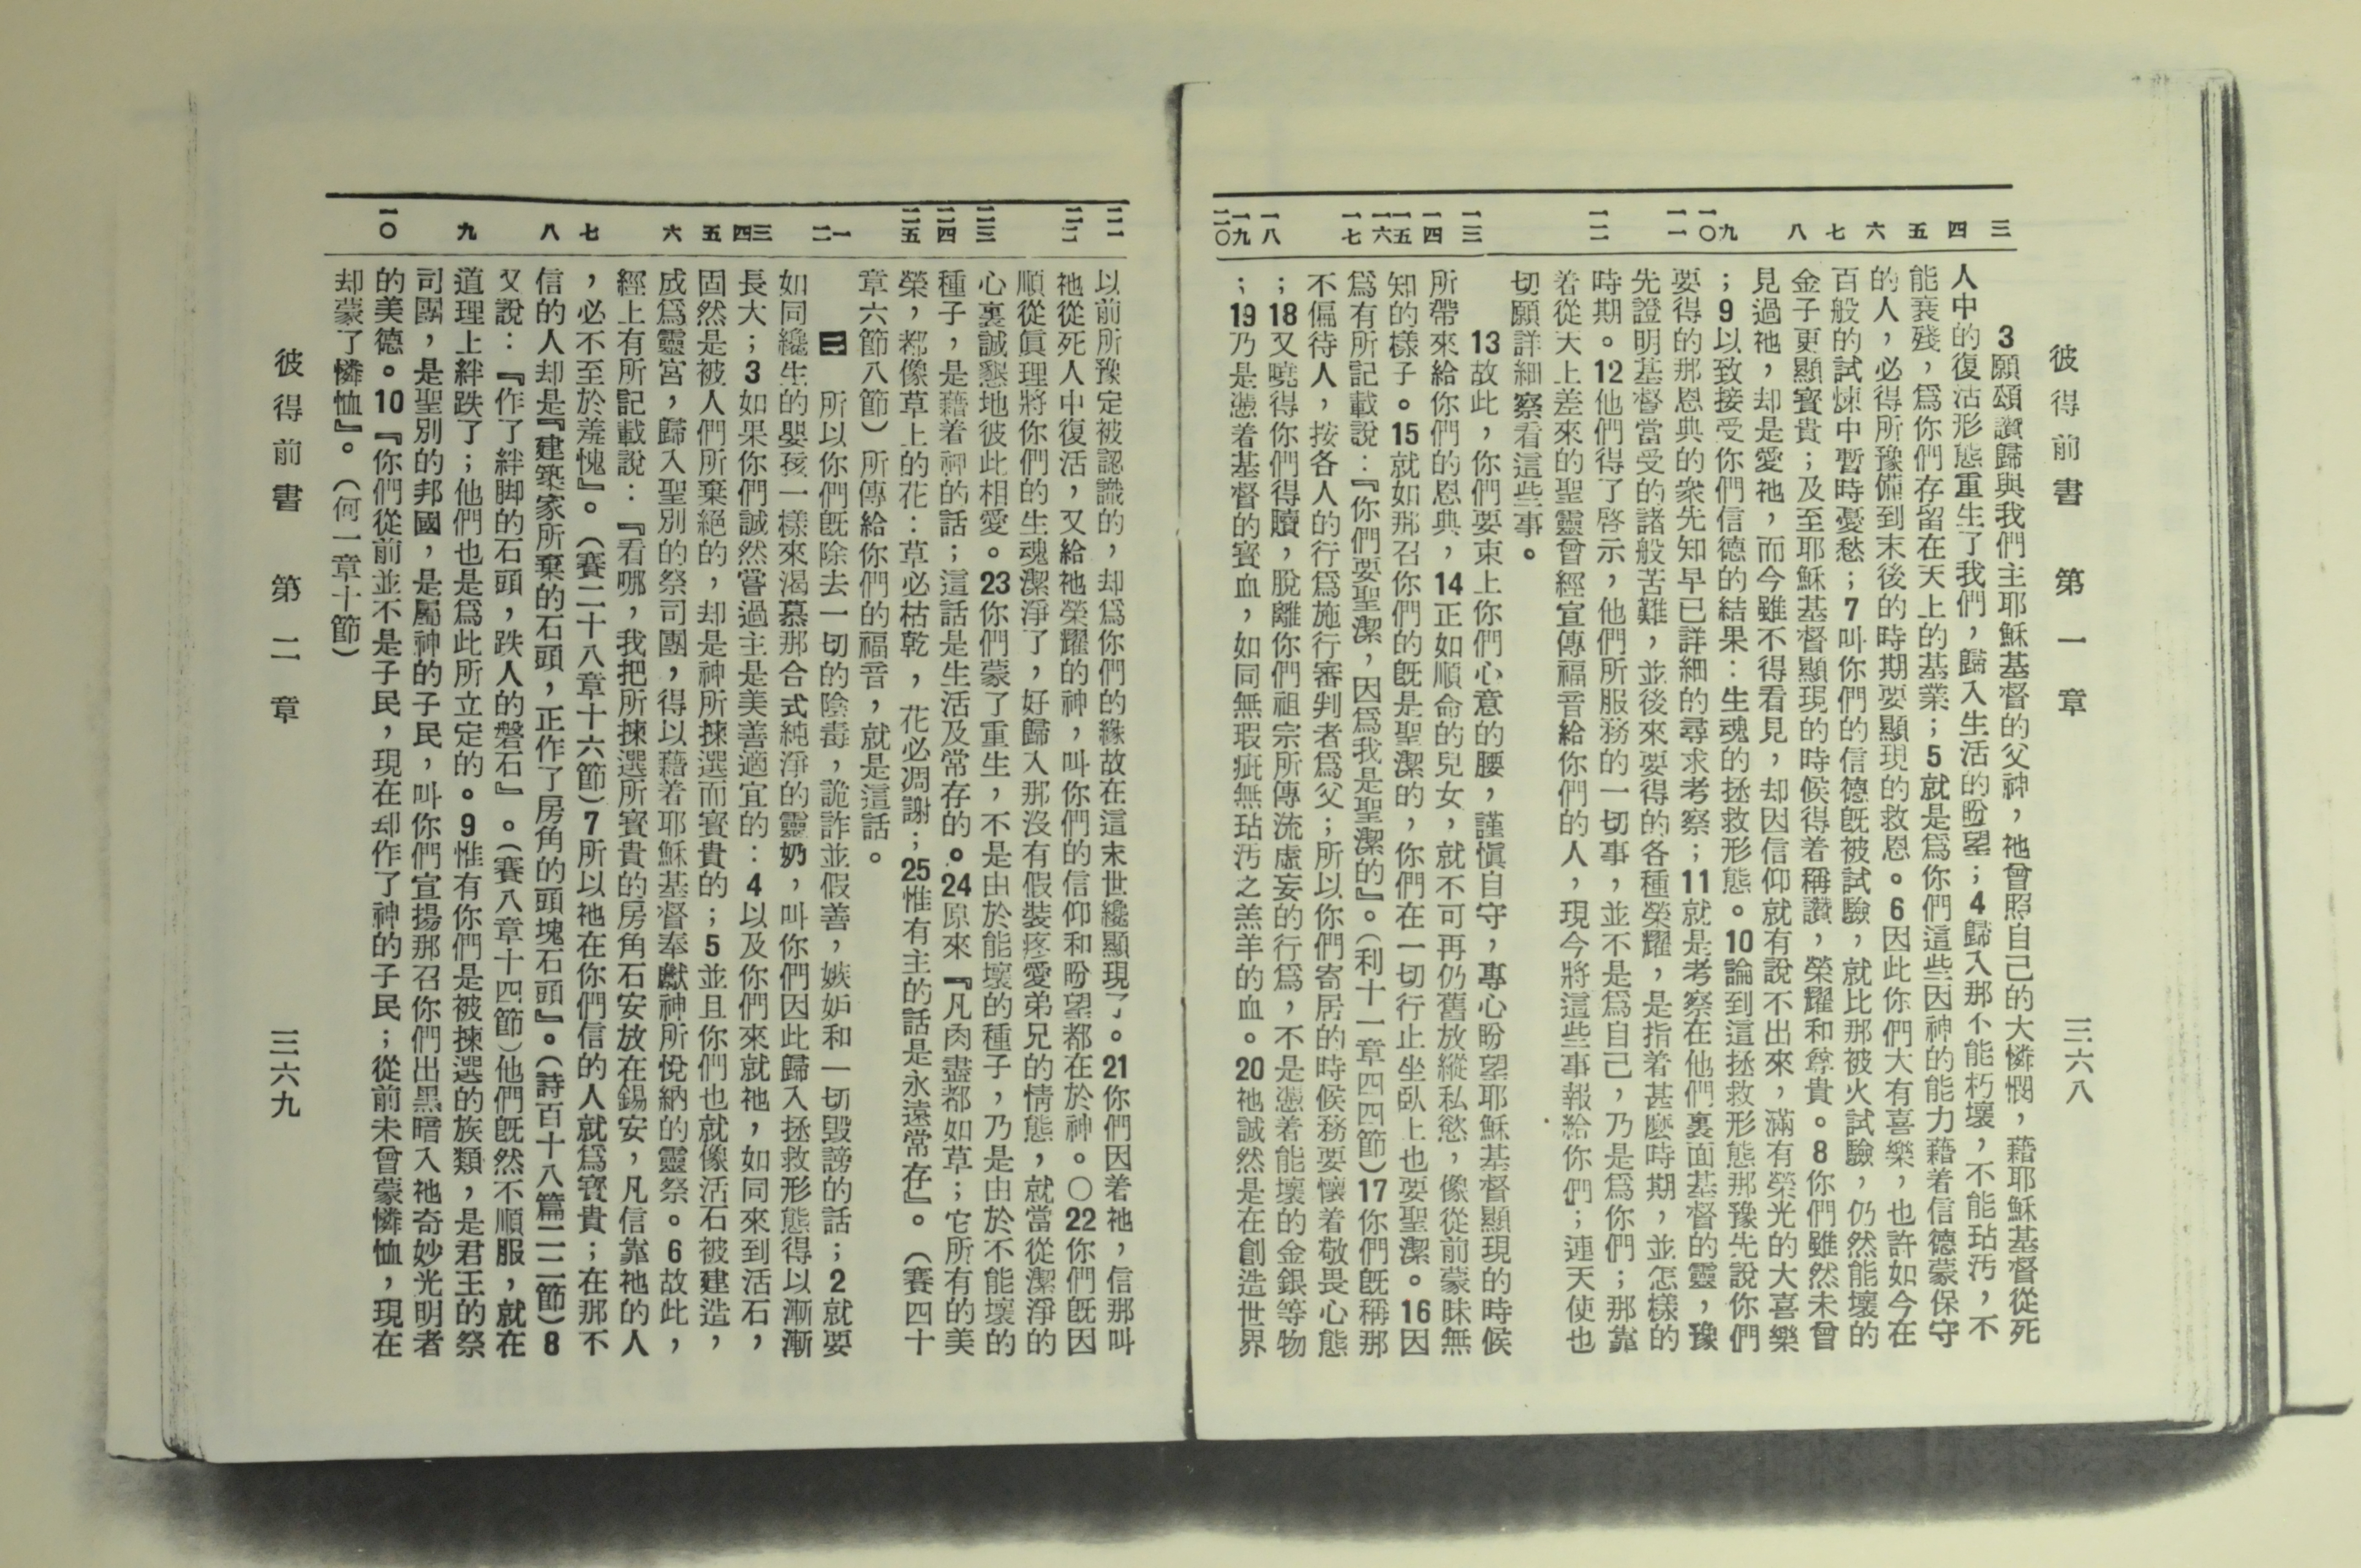 彼得前書 第一章 三六八
三 四 五 六 七 八 九 一〇 一一 一二 一三 一四 一五 一六 一七 一八 一九 二〇
3願頌讚歸與我們主耶穌基督的父神，祂曾照自己的大憐憫，藉耶穌基督從死
人中的復活形態重生了我們，歸入生活的盼望；4歸入那不能朽壞，不能玷汚，不
能衰殘，爲你們存留在天上的基業；5就是爲你們這些因神的能力藉着信德蒙保守
的人，必得所豫備到末後的時期要顯現的救恩。6因此你們大有喜樂，也許如今在
百般的試煉中暫時憂愁；7叫你們的信德旣被試驗，就比那被火試驗，仍然能壞的
金子更顯寶貴；及至耶穌基督顯現的時候得着稱讚，榮耀和尊貴。8你們雖然未曾
見過祂，却是愛祂，而今雖不得看見，却因信仰就有說不出來，滿有榮光的大喜樂
；9以致接受你們信德的結果：生魂的拯救形態。10論到這拯救形態那豫先說你們
要得的那恩典的衆先知早已詳細的尋求考察；11就是考察在他們裏面基督的靈，豫
先證明基督當受的諸般苦難，並後來要得的各種榮耀，是指着甚麼時期，並怎樣的
時期。12他們得了啓示，他們所服務的一切事，並不是爲自己，乃是爲你們；那靠
着從天上差來的聖靈曾經宣傳福音給你們的人，現今將這些事報給你們；連天使也
切願詳細察看這些事。
13故此，你們要束上你們心意的腰，謹愼自守，專心盼望耶穌基督顯現的時候
所帶來給你們的恩典，14正如順命的兒女，就不可再仍舊放縱私慾，像從前蒙昧無
知的樣子。15就如那召你們的旣是聖潔的，你們在一切行止坐臥上也要聖潔。16因
爲有所記載說：『你們要聖潔，因爲我是聖潔的』。（利十一章四四節）17你們旣稱那
不偏待人，按各人的行爲施行審判者爲父；所以你們寄居的時候務要懷着敬畏心態
；18又曉得你們得贖，脫離你們祖宗所傳流虛妄的行爲，不是憑着能壞的金銀等物
；19乃是憑着基督的寶血，如同無瑕疵無玷汚之羔羊的血。20祂誠然是在創造世界
二一 二二 二三 二四 二五 一 二 三 四 五 六 七 八 九 一〇
以前所豫定被認識的，却爲你們的緣故在這末世纔顯現了。21你們因着祂，信那叫
祂從死人中復活，又給祂榮耀的神，叫你們的信仰和盼望都在於神。〇22你們旣因
順從眞理將你們的生魂潔淨了，好歸入那沒有假裝疼愛弟兄的情態，就當從潔淨的
心裏誠懇地彼此相愛。23你們蒙了重生，不是由於能壞的種子，乃是由於不能壞的
種子，是藉着神的話；這話是生活及常存的。24原來『凡肉盡都如草；它所有的美
榮，都像草上的花：草必枯乾，花必凋謝；25惟有主的話是永遠常存』。（賽四十
章六節八節）所傳給你們的福音，就是這話。
二 所以你們旣除去一切的陰毒，詭詐並假善，嫉妒和一切毀謗的話；2就要
如同纔生的嬰孩一樣來渴慕那合式純淨的靈奶，叫你們因此歸入拯救形態得以漸漸
長大；3如果你們誠然嘗過主是美善適宜的：4以及你們來就祂，如同來到活石，
固然是被人們所棄絕的，却是神所揀選而寶貴的；5並且你們也就像活石被建造，
成爲靈宮，歸入聖別的祭司團，得以藉着耶穌基督奉獻神所悅納的靈祭。6故此，
經上有所記載說：『看哪，我把所揀選所寶貴的房角石安放在錫安，凡信靠祂的人
，必不至於羞愧』。（賽二十八章十六節）7所以祂在你們信的人就爲寶貴；在那不
信的人却是『建築家所棄的石頭，正作了房角的頭塊石頭』。（詩百十八篇二二節）8
又說：『作了絆脚的石頭，跌人的磐石』。（賽八章十四節）他們旣然不順服，就在
道理上絆跌了；他們也是爲此所立定的。9惟有你們是被揀選的族類，是君王的祭
司團，是聖別的邦國，是屬神的子民，叫你們宣揚那召你們出黑暗入祂奇妙光明者
的美德。10『你們從前並不是子民，現在却作了神的子民；從前未曾蒙憐恤，現在
却蒙了憐恤』。（何一章十節）
彼得前書 第二章 三六九